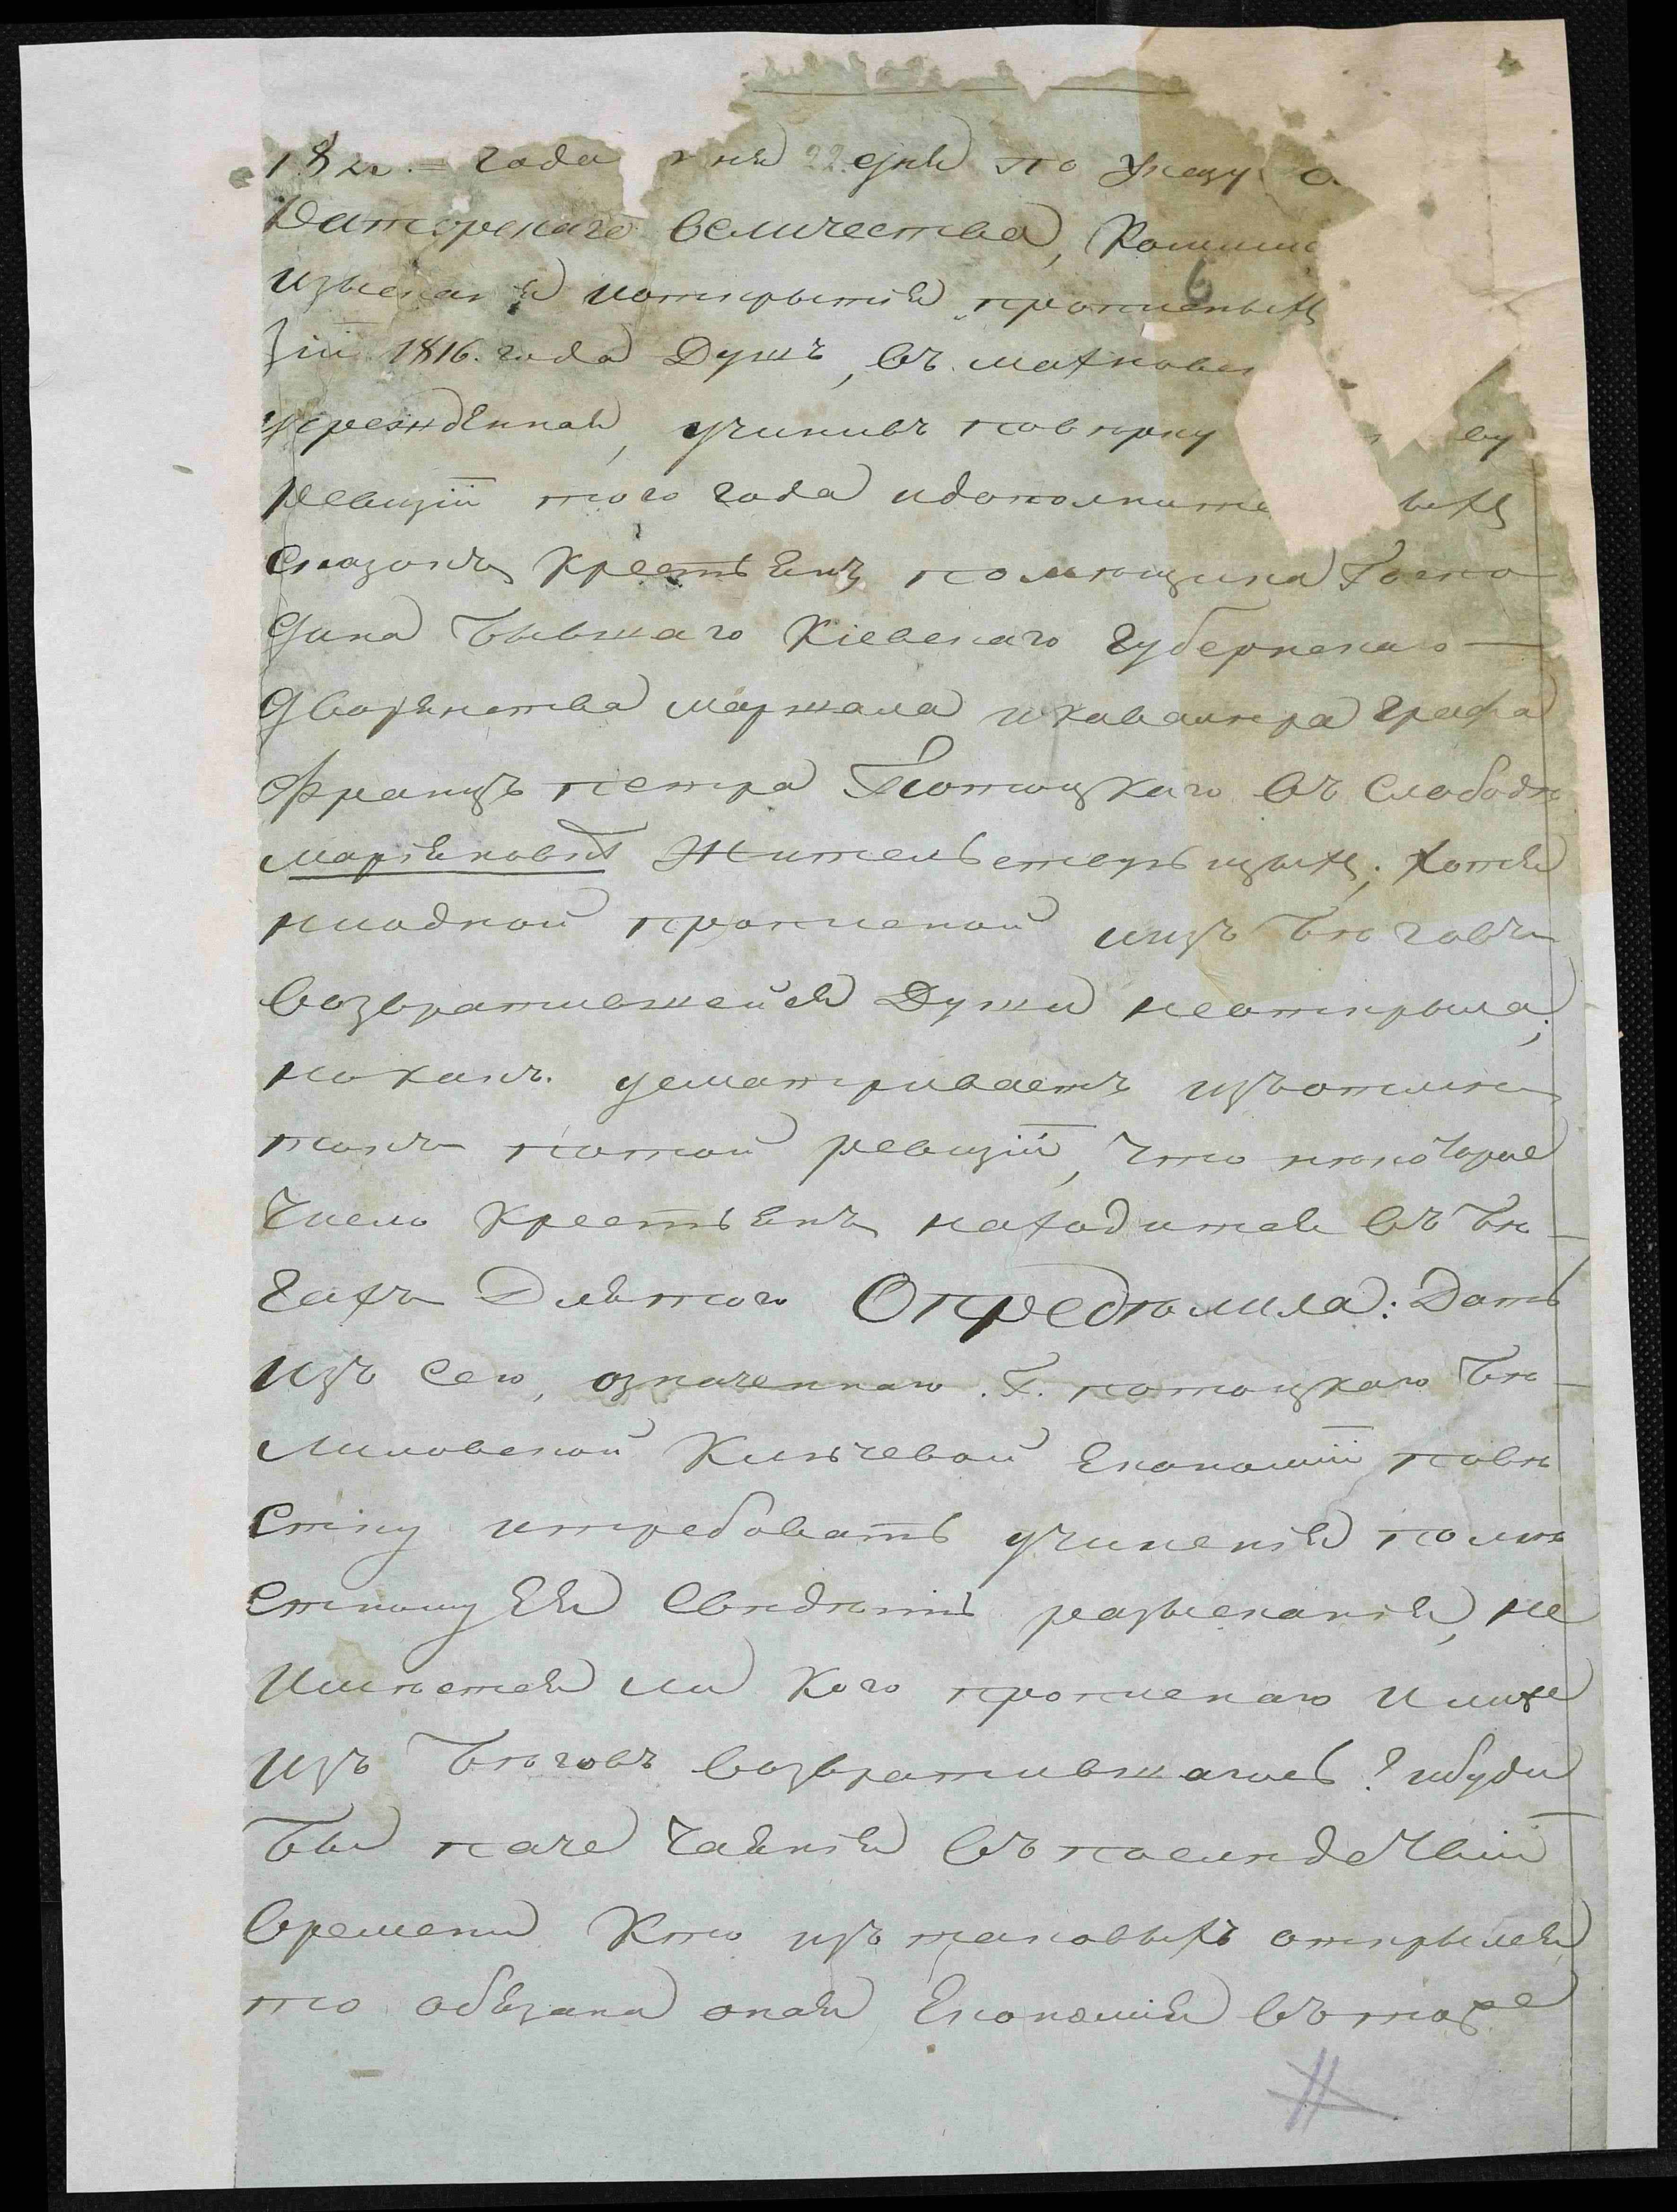 года ня 22 дня по указу
раторскаго величества, Комми
изыскан я иоткрытія прописныхъ
зіи 1816. года Душъ, въ махновск
учрежденная, учинивъ повѣрку ву
ревизіи того года идополните ыхъ
сказокъ крестьянъ помѣщика Госпо
дина бывшаго Кіевскаго Губернскаго —
дворянства маршала икавалѣра Графа
Францъ петра Потоцкаго въ слободѣ
маріяновкѣ жительствующихъ; хотя
ниодной прописной иизъ бѣговъ
возвратившейся Души неоткрыла;
нокакъ усматриваетъ изъотмѣ
токъ потой ревизіи, что нѣкоторые
число крестьянъ находится въ бѣ —
гахъ Длятого Опредѣлила: Дать
изъ сего, означеннаго Г. потоцкаго бѣ —
Лиловской Ключевой Економіи повѣ
стку итребовать учиненія помѣ
стному Ея свѣдѣнію разысканія, не
имѣется ли кого прописнаго илиже
изъ бѣговъ возвратившагось? ибуди
бы паче чаянія въпослѣдствіи
времени кто изъ таковыхъ открылся
то обязана оная Економія въ тоже
6